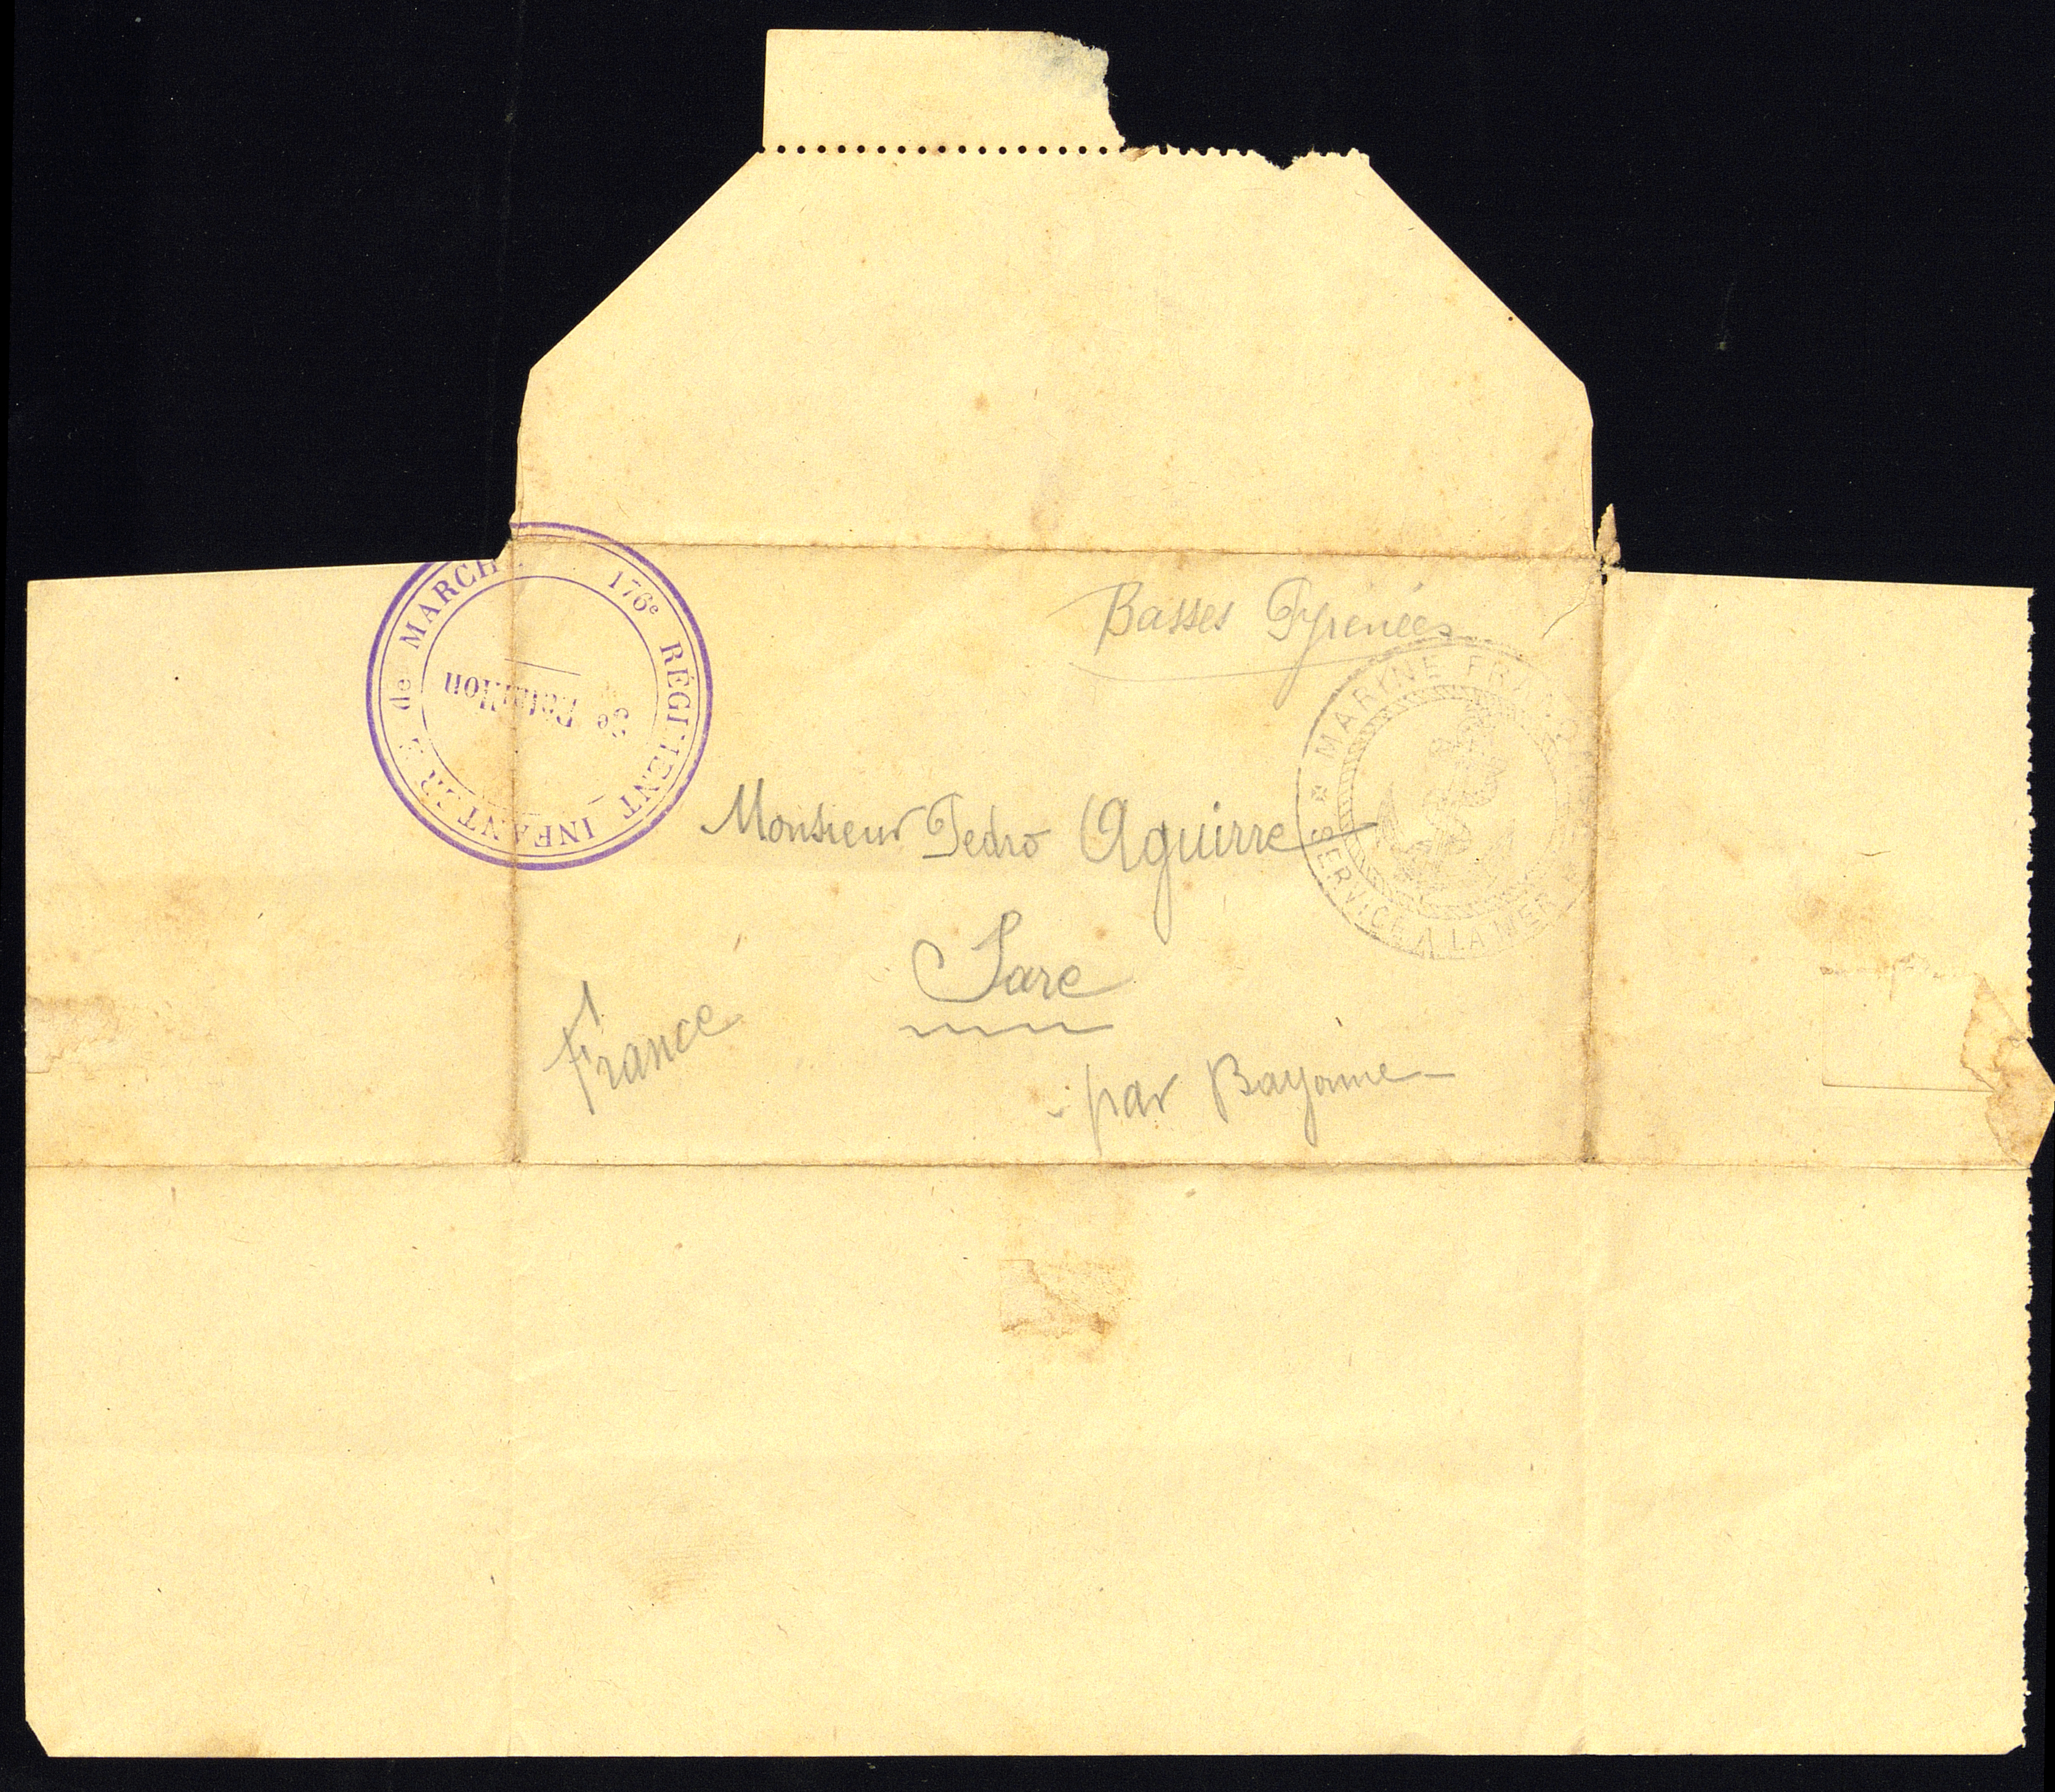 176e RÉGIMENT INFANTERIE de MARCHE
3e Bataillon
Basses Pyrénées
MARINE FRANÇAISE
SERVICE A LA MER
Monsieur Pedro Aguirre
Sare
France
par Bayonne